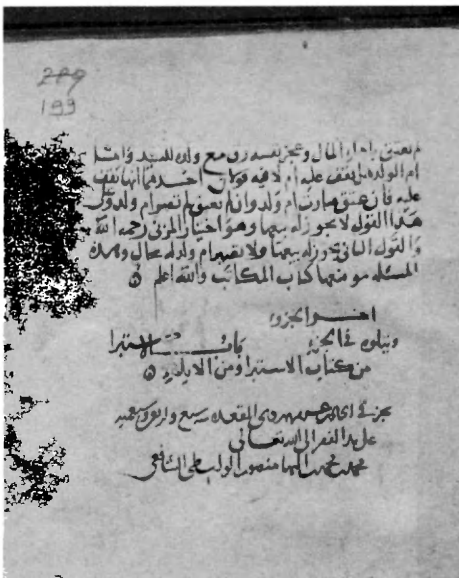 289
199
لم يعتق باداء المال وعجز نفسه رق مع ولده للسيد واما
ام الولد هل تقف عليه ام لا فيه قولان احدهما انها تقف
عليه فان عتق صارت ام ولد وان لم يعتق لم تصر ام ولد وعلى
هذا القول لا يجوز له بيعها وهو اختيار المزني رحمه الله
والقول الثاني يجوز له بيعها ولا تصير ام ولد له بحال وهذه
المسئله موضعها كتاب المكاتب والله اعلم
اخر الجزء
ويتلوه في الجزء باب الاستبرا
من كتاب الاستبرا ومن الايلاء
نجز في عشر من ذي القعده سبع واربعين
على يد الفقير الى الله تعالى
محمد بن محمد منصور الشافعي